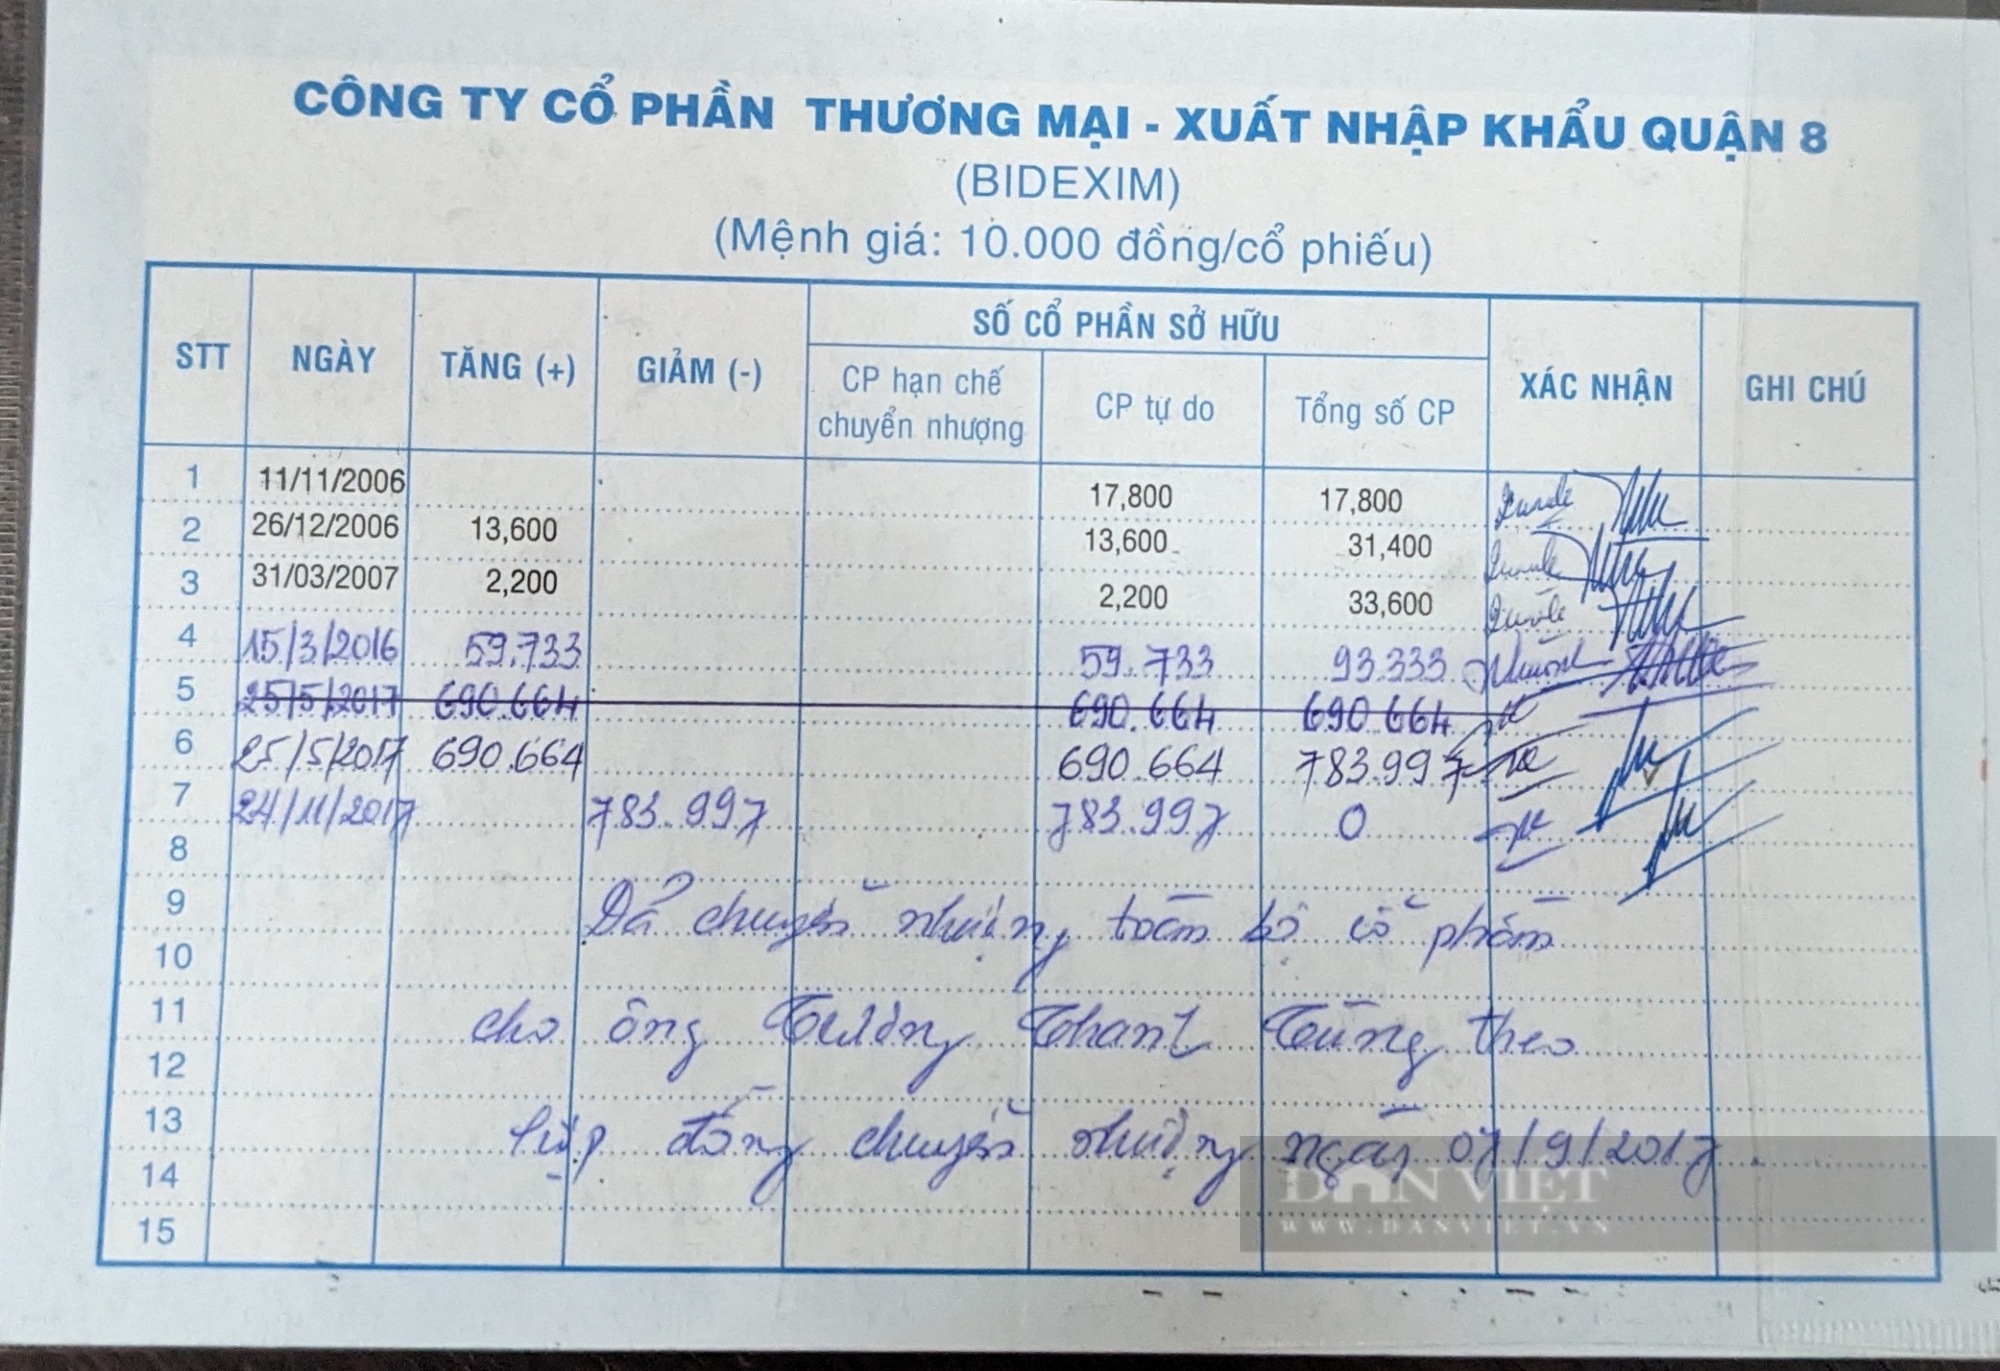 CÔNG TY CỔ PHẦN THƯƠNG MẠI - XUẤT NHẬP KHẨU QUẬN 8
(BIDEXIM)
(Mệnh giá: 10.000 đồng/cổ phiếu)
STT NGÀY TĂNG (+) GIẢM (-) SỐ CỔ PHẦN SỞ HỮU XÁC NHẬN GHI CHÚ
CP hạn chế chuyển nhượng CP tự do Tổng số CP
1 11/11/2006 17,800 17,800
2 26/12/2006 13,600 13,600 31,400
3 31/03/2007 2,200 2,200 33,600
4 15/3/2016 59.733 59.733 93.333
5 25/5/2017 690.664 690.664 690.664
6 25/5/2017 690.664 690.664 783.997
7 24/11/2017 783.997 783.997 0
8
9 Đã chuyển nhượng toàn bộ cổ phần
10
11 cho ông Tường Thanh Tùng theo
12
13 đồng chuyển nhượng ngày 07/9/2017.
14
15
DÂN VIỆT
WWW.DANVIET.VN